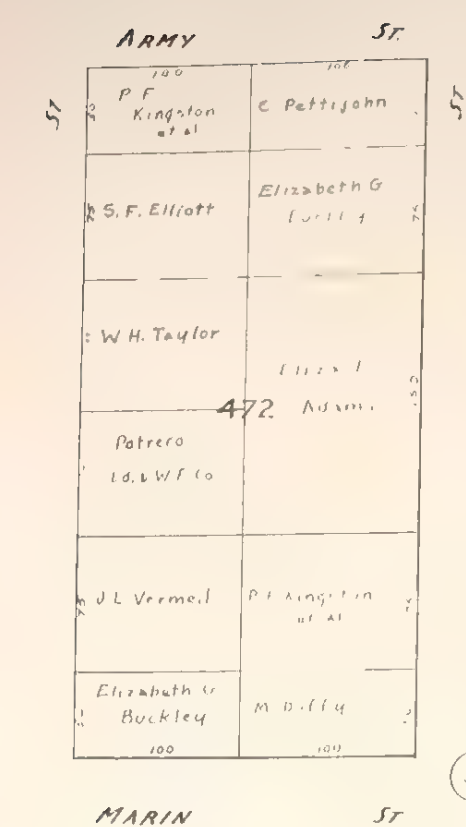 ARMY ST.
ST ST
100 100
P F
Kingston
et al
C Pettijohn
75 S. F. Elliott
Elizabeth G
75
W H. Taylor
472 Adams
150
Potrero
Ld. & W F Co
75 J L Vermeil
P F Kingston
et al
Elizabeth G
Buckley
M Duffy
100 100
MARIN ST